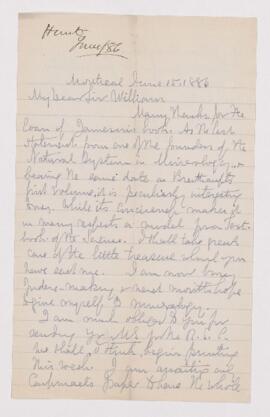 Hunt
June/86
Montreal June 15. 1886
My dear Sir William
Many thanks for the
loan of Jameson's book. As the last
from one of the founders of the
Natural System in Mineralogy, &
bearing the same date as Breithaupt's
first volume, it is peculiarly interesting
to me, while its conciseness makes it
in many respects a model for a text-
book of the science. I shall take great
care of the little treasure which you
have sent me. I am now busy
Index-making & next month hope
to give myself to mineralogy.
I am much obliged to you for
sending yr MS. for the R.S.C.
We shall, I think begin printing
this week. I am awaiting
paper to have the whole